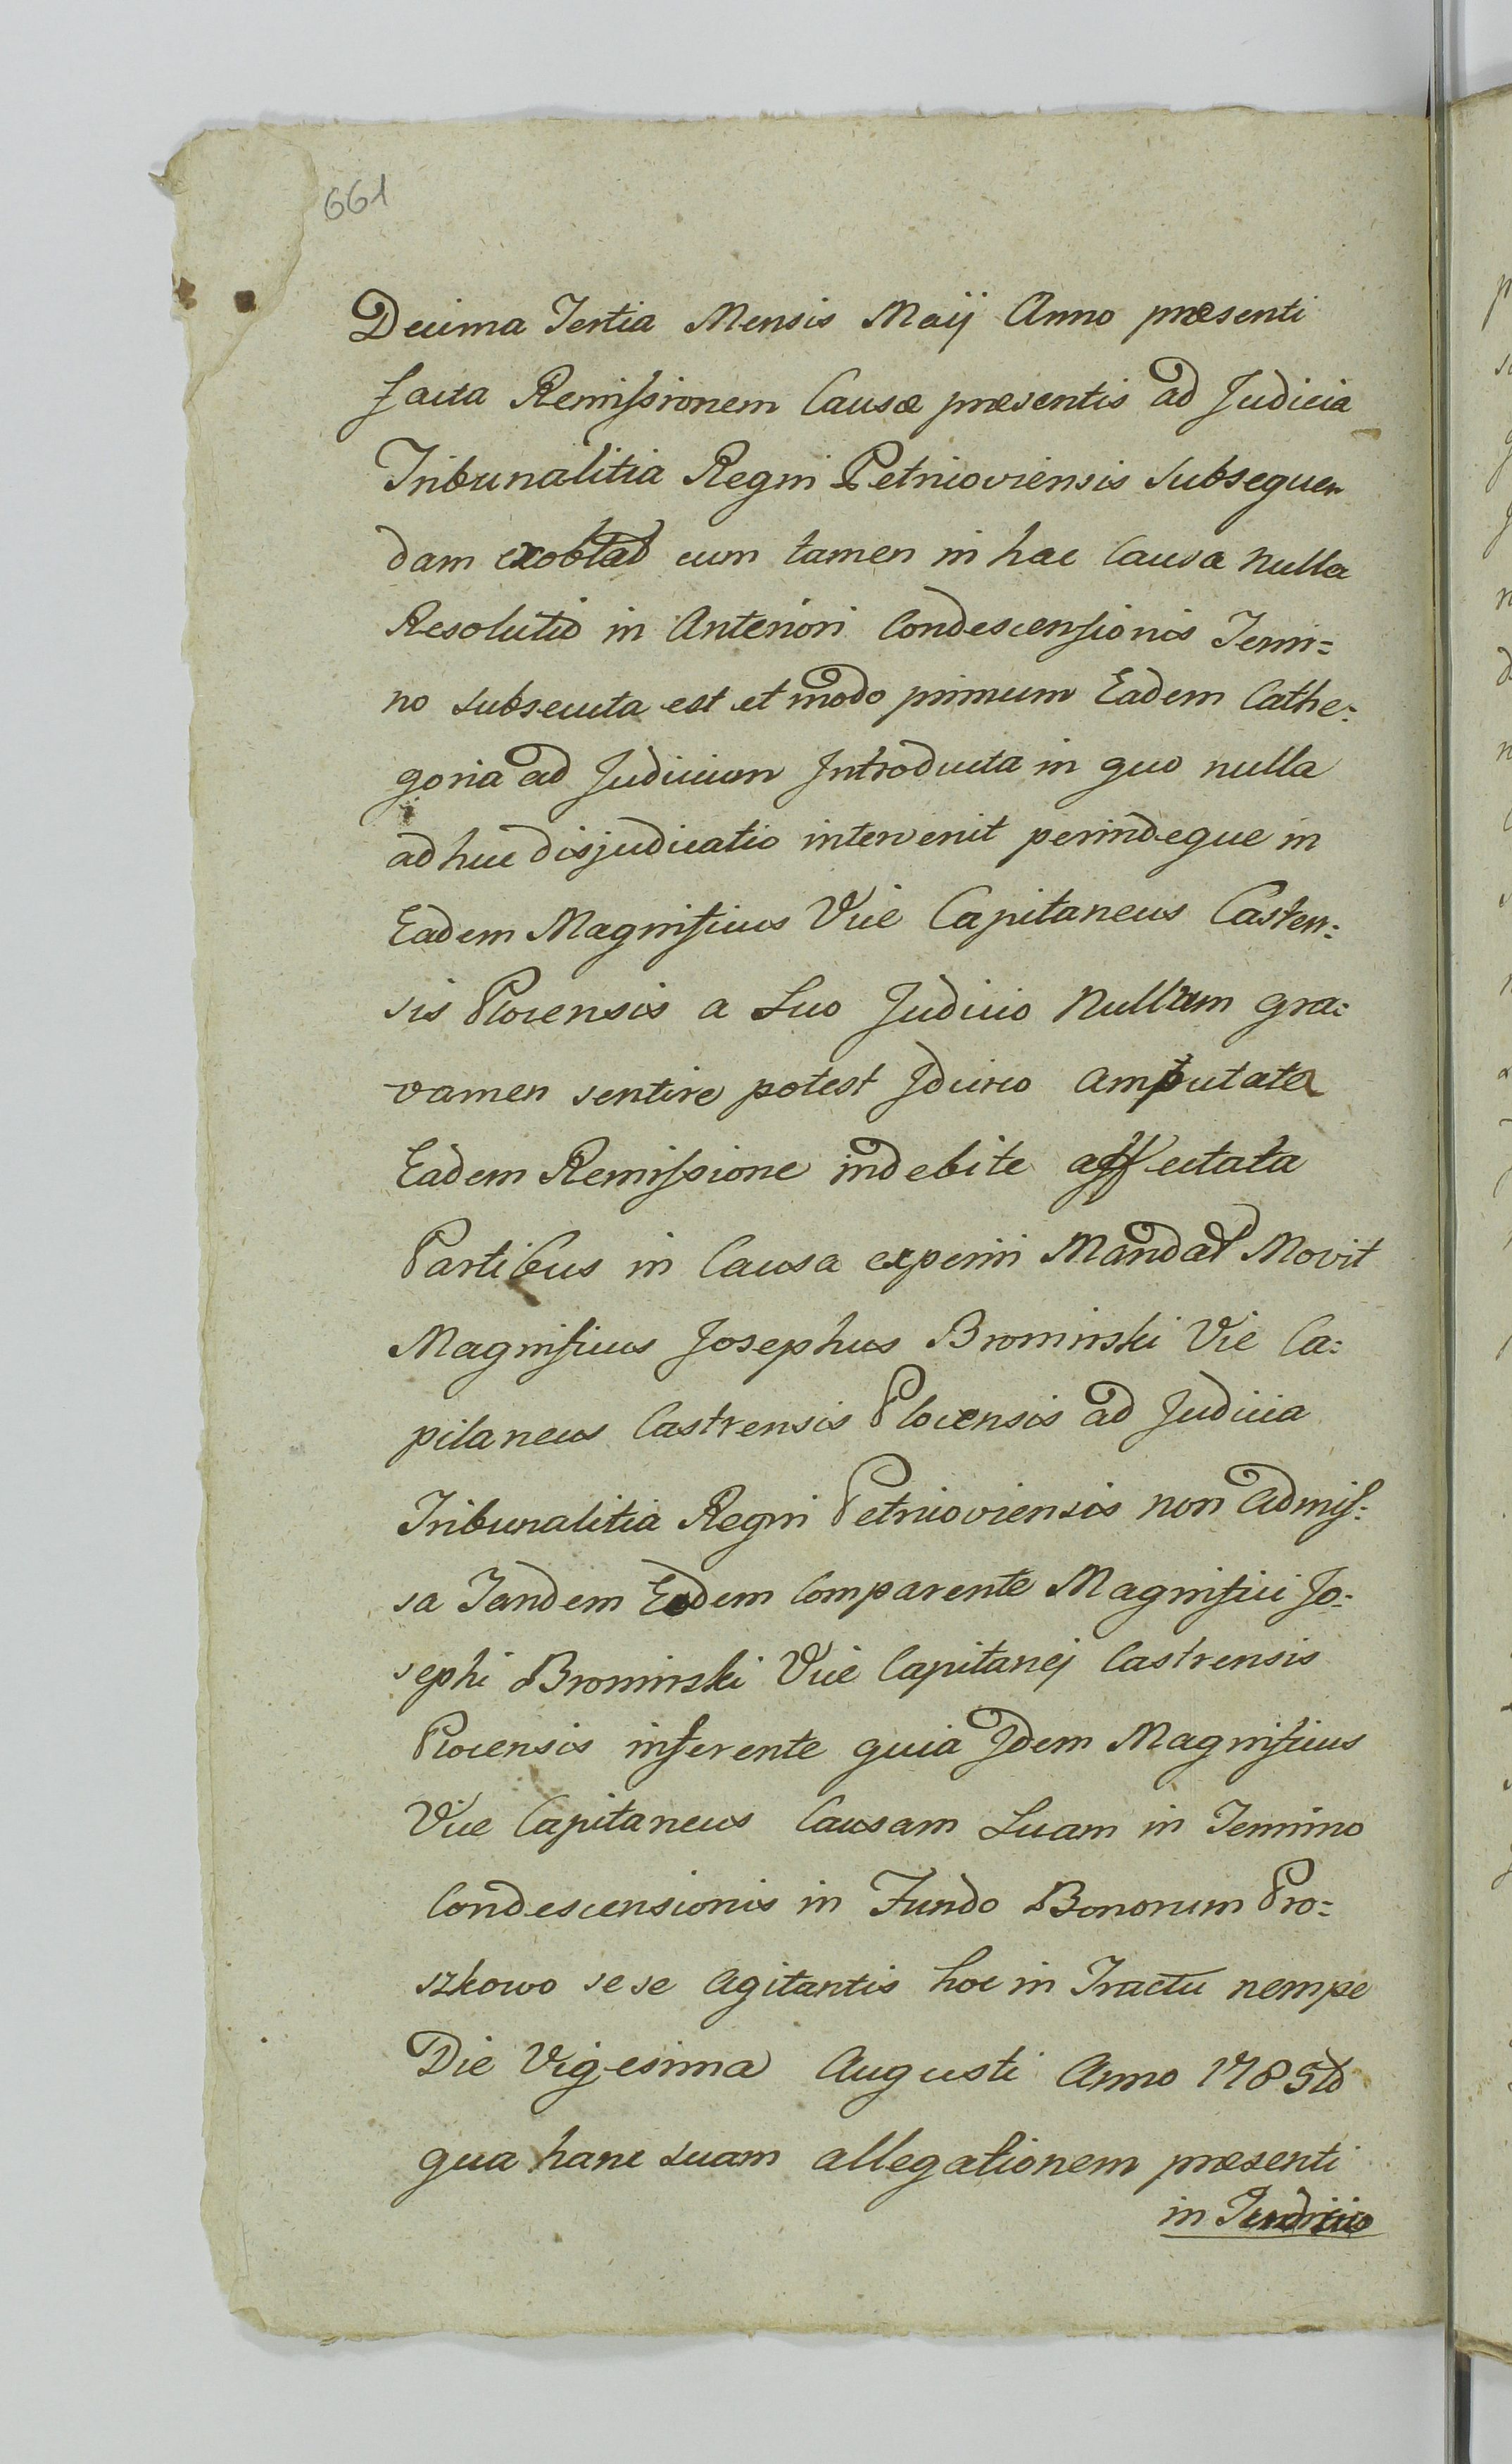 661
Decima Tertia Mensis Maij Anno præsenti
facta Remissionem Causæ præsentis ad Judicia
Tribunalitia Regni Petricoviensis Subsequen
dam exoptat cum tamen in hac Causa nulla
Resolutio in Anteriori Condescensionis Termi=
no subsecuta est et modo primum Eadem Cathe=
goria ad Judicium Introducta in quo nulla
adhuc disjudicatio intervenit perindeque in
Eadem Magnificus Vice Capitaneus Castren=
sis Plocensis a Suo Judicio Nullum gra=
vamen sentire potest Idcirco amputata
Eadem Remissione indebite affectata
Partibus in Causa experiri Mandat Movit
Magnificus Josephus Bromirski Vice Ca=
pitaneus Castrensis Plocensis ad Judicia
Tribunalitia Regni Petricoviensis non admis=
sa Tandem Eodem Comparente Magnifici Jo=
sephi Bromirski Vice Capitanej Castrensis
Plocensis inferente quia Idem Magnificus
Vice Capitaneus Causam Suam in Termino
Condescensionis in Fundo Bonorum Pro=
szkowo sese Agitantis hoc in Tractu nempe
Die Vigesima Augusti Anno 1785to
qua hanc suam allegationem præsenti
in Judicio